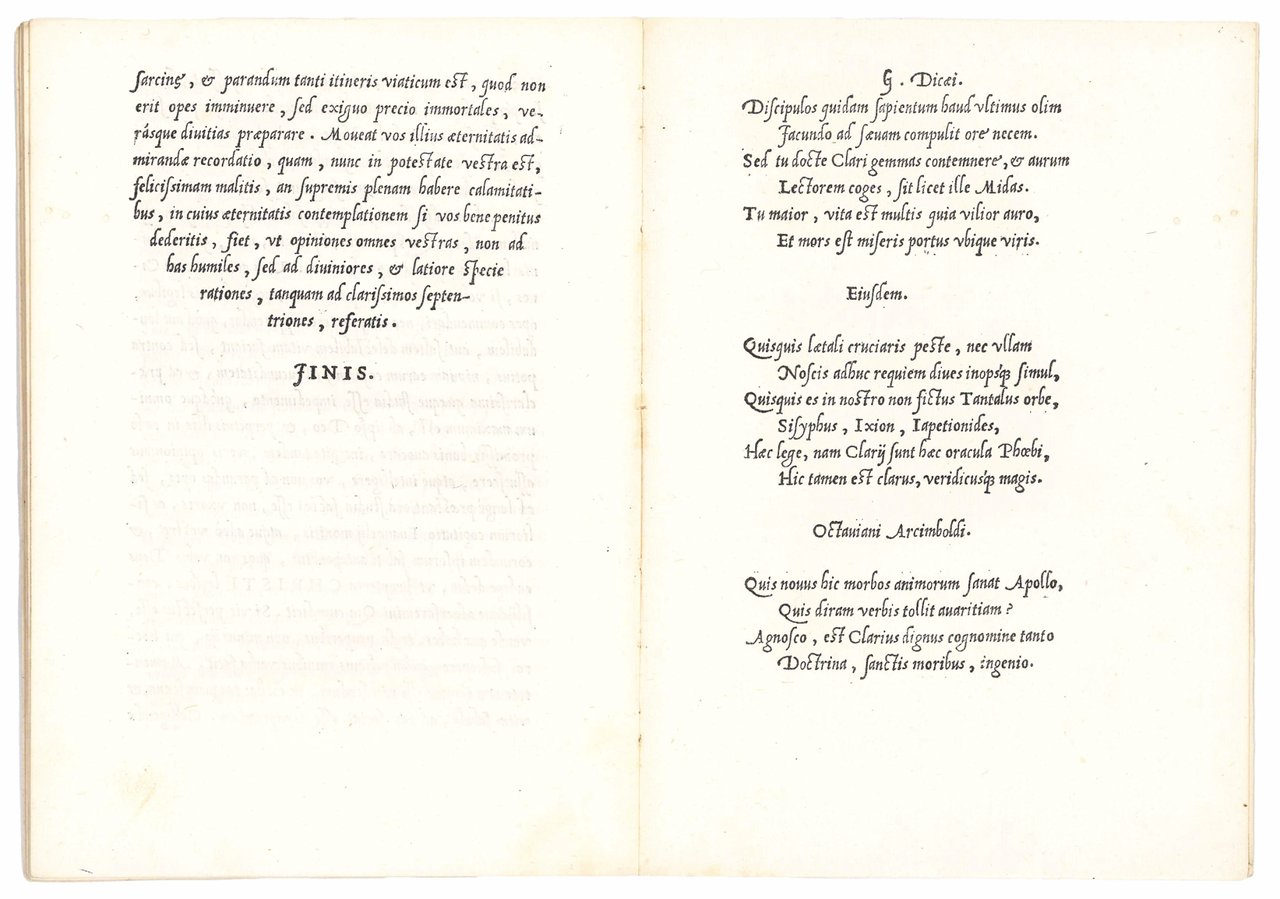 sarcinę, & parandum tanti itineris viaticum est, quod non
erit opes imminuere, sed exiguo precio immortales, ve-
rásque diuitias præparare. Moueat vos illius æternitatis ad-
mirandæ recordatio, quam, nunc in potestate vestra est,
felicissimam malitis, an supremis plenam habere calamitati-
bus, in cuius æternitatis contemplationem si vos bene penitus
dederitis, fiet, vt opiniones omnes vestras, non ad
has humiles, sed ad diuiniores, & latiore specie
rationes, tanquam ad clarissimos septen-
triones, referatis.
FINIS.
G. Dicæi.
Discipulos quidam sapientum haud vltimus olim
Facundo ad sæuam compulit ore necem.
Sed tu docte Clari gemmas contemnere, & aurum
Lectorem coges, sit licet ille Midas.
Tu maior, vita est multis quia vilior auro,
Et mors est miseris portus vbique viris.
Eiusdem.
Quisquis lætali cruciaris peste, nec vllam
Noscis adhuc requiem diues inopsq́; simul,
Quisquis es in nostro non fictus Tantalus orbe,
Sisyphus, Ixion, Iapetionides,
Hæc lege, nam Clarij sunt hæc oracula Phœbi,
Hic tamen est clarus, veridicusq́; magis.
Octauiani Arcimboldi.
Quis nouus hic morbos animorum sanat Apollo,
Quis diram verbis tollit auaritiam?
Agnosco, est Clarius dignus cognomine tanto
Doctrina, sanctis moribus, ingenio.